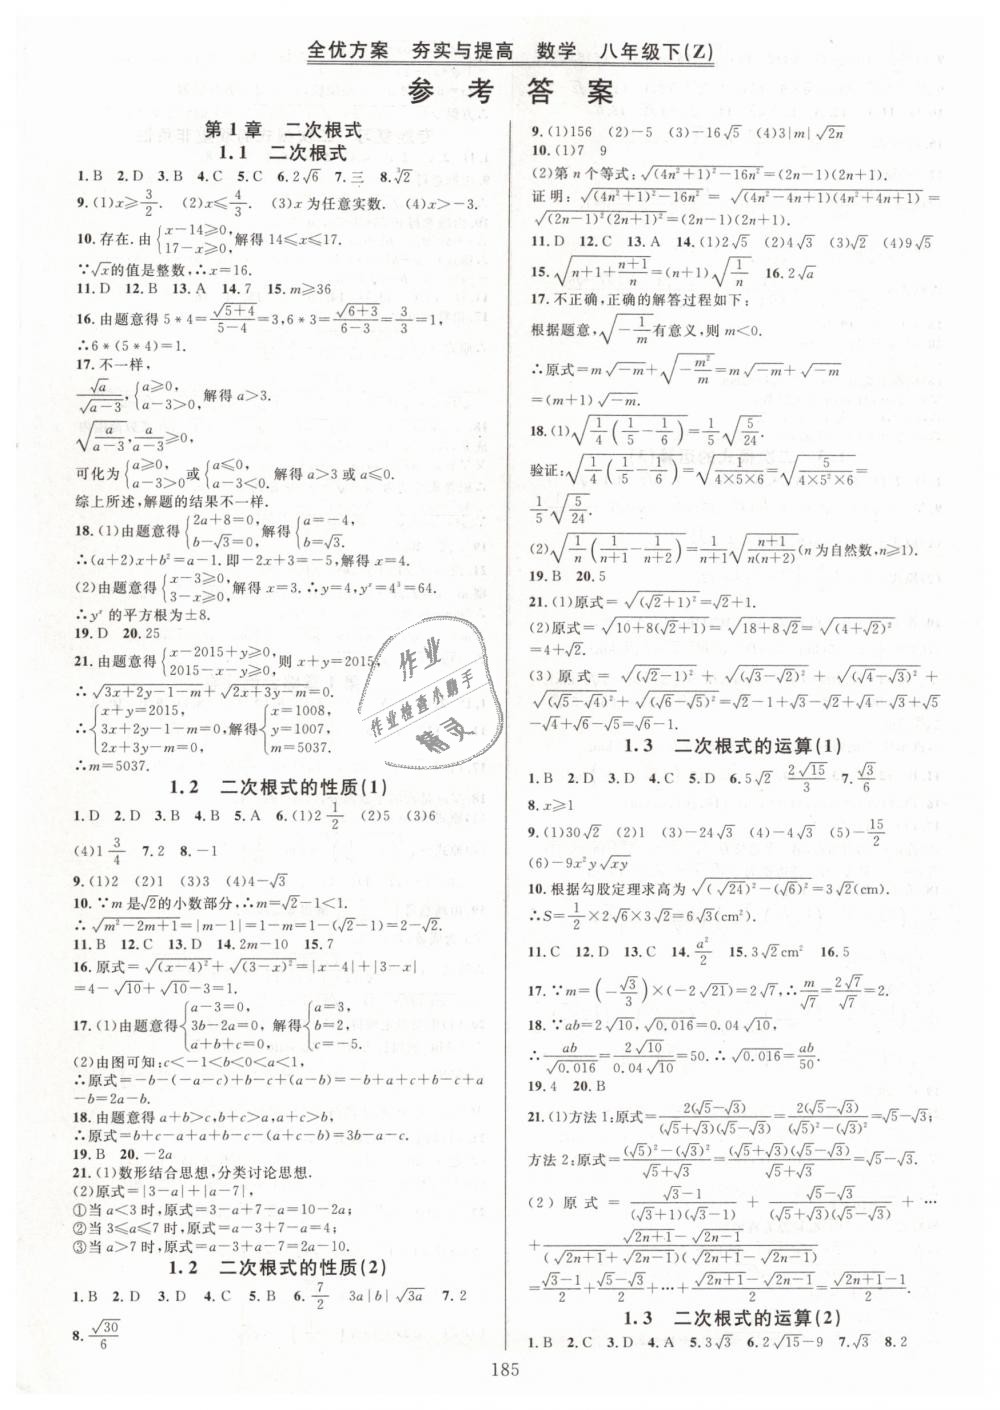 全优方案　夯实与提高　数学　八年级下(Z)
参考答案
第1章　二次根式
1.1　二次根式
1. B　2. D　3. B　4. C　5. C　6. 2√6　7. 三　8. ∛2
9. (1)x≥3/2.　(2)x≤4/3.　(3)x为任意实数.　(4)x>-3.
10. 存在. 由{x-14≥0, 17-x≥0, 解得14≤x≤17.
∵√x的值是整数,∴x=16.
11. D　12. B　13. A　14. 7　15. m≥36
16. 由题意得5*4=√(5+4)/(5-4)=3,6*3=√(6+3)/(6-3)=3/3=1,
∴6*(5*4)=1.
17. 不一样,
√a/√(a-3),{a≥0, a-3>0, 解得a>3.
√(a/(a-3)),a/(a-3)≥0,
可化为{a≥0, a-3>0 或{a≤0, a-3<0. 解得a>3或a≤0.
综上所述,解题的结果不一样.
18. (1)由题意得{2a+8=0, b-√3=0, 解得{a=-4, b=√3.
∴(a+2)x+b²=a-1. 即-2x+3=-5,解得x=4.
(2)由题意得{x-3≥0, 3-x≥0, 解得x=3. ∴y=4,yˣ=4³=64.
∴yˣ的平方根为±8.
19. D　20. 25
21. 由题意得{x-2015+y≥0, 2015-x-y≥0, 则x+y=2015,
∴√(3x+2y-1-m)+√(2x+3y-m)=0.
∴{x+y=2015, 3x+2y-1-m=0, 2x+3y-m=0, 解得{x=1008, y=1007, m=5037.
∴m=5037.
1.2　二次根式的性质(1)
1. D　2. D　3. B　4. B　5. A　6. (1)2 1/2　(2)5　(3)6
(4)1 3/4　7. 2　8. -1
9. (1)2　(2)1　(3)3　(4)4-√3
10. ∵m是√2的小数部分,∴m=√2-1<1.
∴√(m²-2m+1)=|m-1|=1-m=1-(√2-1)=2-√2.
11. B　12. C　13. D　14. 2m-10　15. 7
16. 原式=√(x-4)²+√(3-x)²=|x-4|+|3-x|
=4-√10+√10-3=1.
17. (1)由题意得{a-3=0, 3b-2a=0, a+b+c=0, 解得{a=3, b=2, c=-5.
(2)由图可知:c<-1<b<0<a<1,
∴原式=-b-(-a-c)+b-c+(-a-b)=-b+a+c+b-c+a
-b=2a-b.
18. 由题意得a+b>c,b+c>a,a+c>b,
∴原式=b+c-a+a+b-c-(a+c-b)=3b-a-c.
19. B　20. -2a
21. (1)数形结合思想,分类讨论思想.
(2)原式=|3-a|+|a-7|,
①当a<3时,原式=3-a+7-a=10-2a;
②当3≤a≤7时,原式=a-3+7-a=4;
③当a>7时,原式=a-3+a-7=2a-10.
1.2　二次根式的性质(2)
1. B　2. D　3. D　4. C　5. B　6. 7/2　3a|b|√3a　7. 2
8. √30/6
9. (1)156　(2)-5　(3)-16√5　(4)3|m|√2n
10. (1)7　9
(2)第n个等式:√((4n²+1)²-16n²)=(2n-1)(2n+1).
证明:√((4n²+1)²-16n²)=√((4n²-4n+1)(4n²+4n+1))=
√((2n-1)²(2n+1)²)=(2n-1)(2n+1).
11. D　12. C　13. A　14. (1)2√5　(2)4√3　(3)√2　(4)9√5
15. √(n+1+(n+1)/n)=(n+1)√(1/n)　16. 2√a
17. 不正确,正确的解答过程如下:
根据题意,√(-1/m)有意义,则m<0.
∴原式=m√-m+√(-m²/m)=m√-m+√-m
=(m+1)√-m.
18. (1)√(1/4(1/5-1/6))=1/5√(5/24).
验证:√(1/4(1/5-1/6))=√(1/(4×5×6))=√(5/(4×5²×6))=
1/5√(5/24).
(2)√(1/n(1/(n+1)-1/(n+2)))=1/(n+1)√((n+1)/(n(n+2)))(n为自然数,n≥1).
19. B　20. 5
21. (1)原式=√(√2+1)²=√2+1.
(2)原式=√(10+8(√2+1))=√(18+8√2)=√(4+√2)²
=4+√2.
(3)原式=√(√2-1)²+√(√3-√2)²+√(√4-√3)²+
√(√5-√4)²+√(√6-√5)²=√2-1+√3-√2+√4-√3+√5
-√4+√6-√5=√6-1.
1.3　二次根式的运算(1)
1. B　2. D　3. D　4. C　5. D　6. 5√2　2√15/3　7. √3/6
8. x≥1
9. (1)30√2　(2)1　(3)-24√3　(4)-4√3　(5)-15/2
(6)-9x²y√xy
10. 根据勾股定理求高为√((√24)²-(√6)²)=3√2(cm).
∴S=1/2×2√6×3√2=6√3(cm²).
11. C　12. D　13. C　14. a²/2　15. 3√2cm²　16. 5
17. ∵m=(-√3/3)×(-2√21)=2√7,∴m/√7=2√7/√7=2.
18. ∵ab=2√10,√0.016=0.04√10,
∴ab/√0.016=2√10/0.04√10=50. ∴√0.016=ab/50.
19. 4　20. B
21. (1)方法1:原式=2(√5-√3)/((√5+√3)(√5-√3))=2(√5-√3)/2=√5-√3;
方法2:原式=((√5)²-(√3)²)/(√5+√3)=((√5+√3)(√5-√3))/(√5+√3)=√5-√3.
(2)原式=(√3-1)/((√3+1)(√3-1))+(√5-√3)/((√5+√3)(√5-√3))+…
+(√(2n+1)-√(2n-1))/((√(2n+1)+√(2n-1))(√(2n+1)-√(2n-1)))
=(√3-1)/2+(√5-√3)/2+…+(√(2n+1)-√(2n-1))/2=(√(2n+1)-1)/2.
1.3　二次根式的运算(2)
1. B　2. C　3. D　4. A　5. 3√3　6. 2√15-9　7. √3　8. 2
185
作业
作业检查小助手
精灵